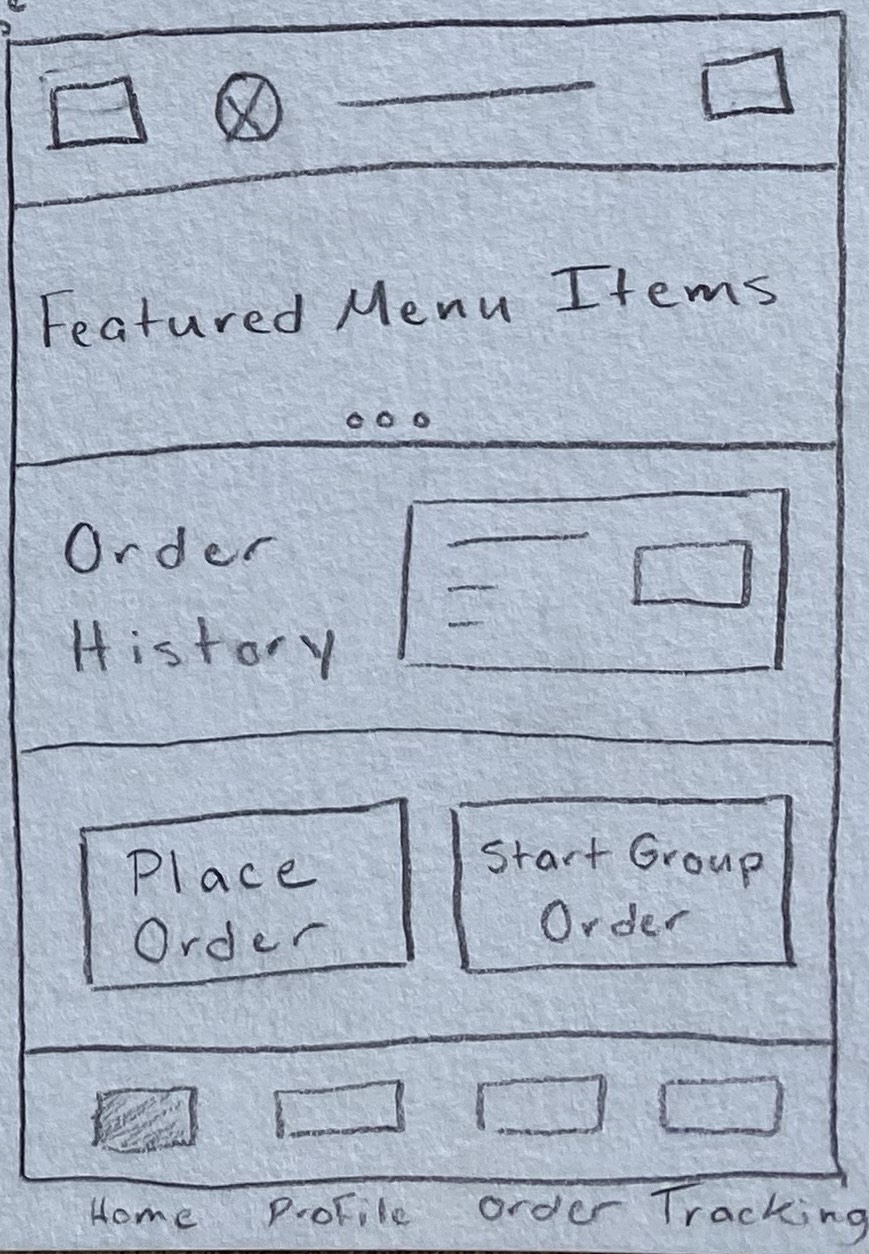 Featured Menu Items
Order
History
Place
Order
Start Group
Order
Home Profile Order Tracking